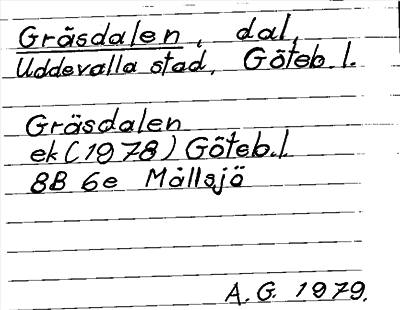 Gräsdalen, dal,
Uddevalla stad, Göteb. l.
Gräsdalen
ek (1978) Göteb. l.
8B 6e Mällsjö
A. G. 1979.